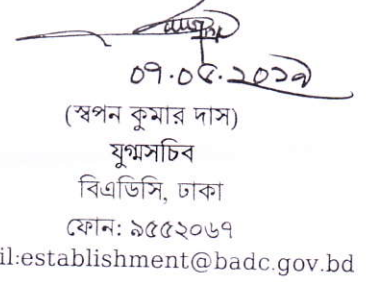 ০৭.০৫.২০১৯
(স্বপন কুমার দাস)
যুগ্মসচিব
বিএডিসি, ঢাকা
ফোন: ৯৫৫২০৬৭
il:establishment@badc.gov.bd